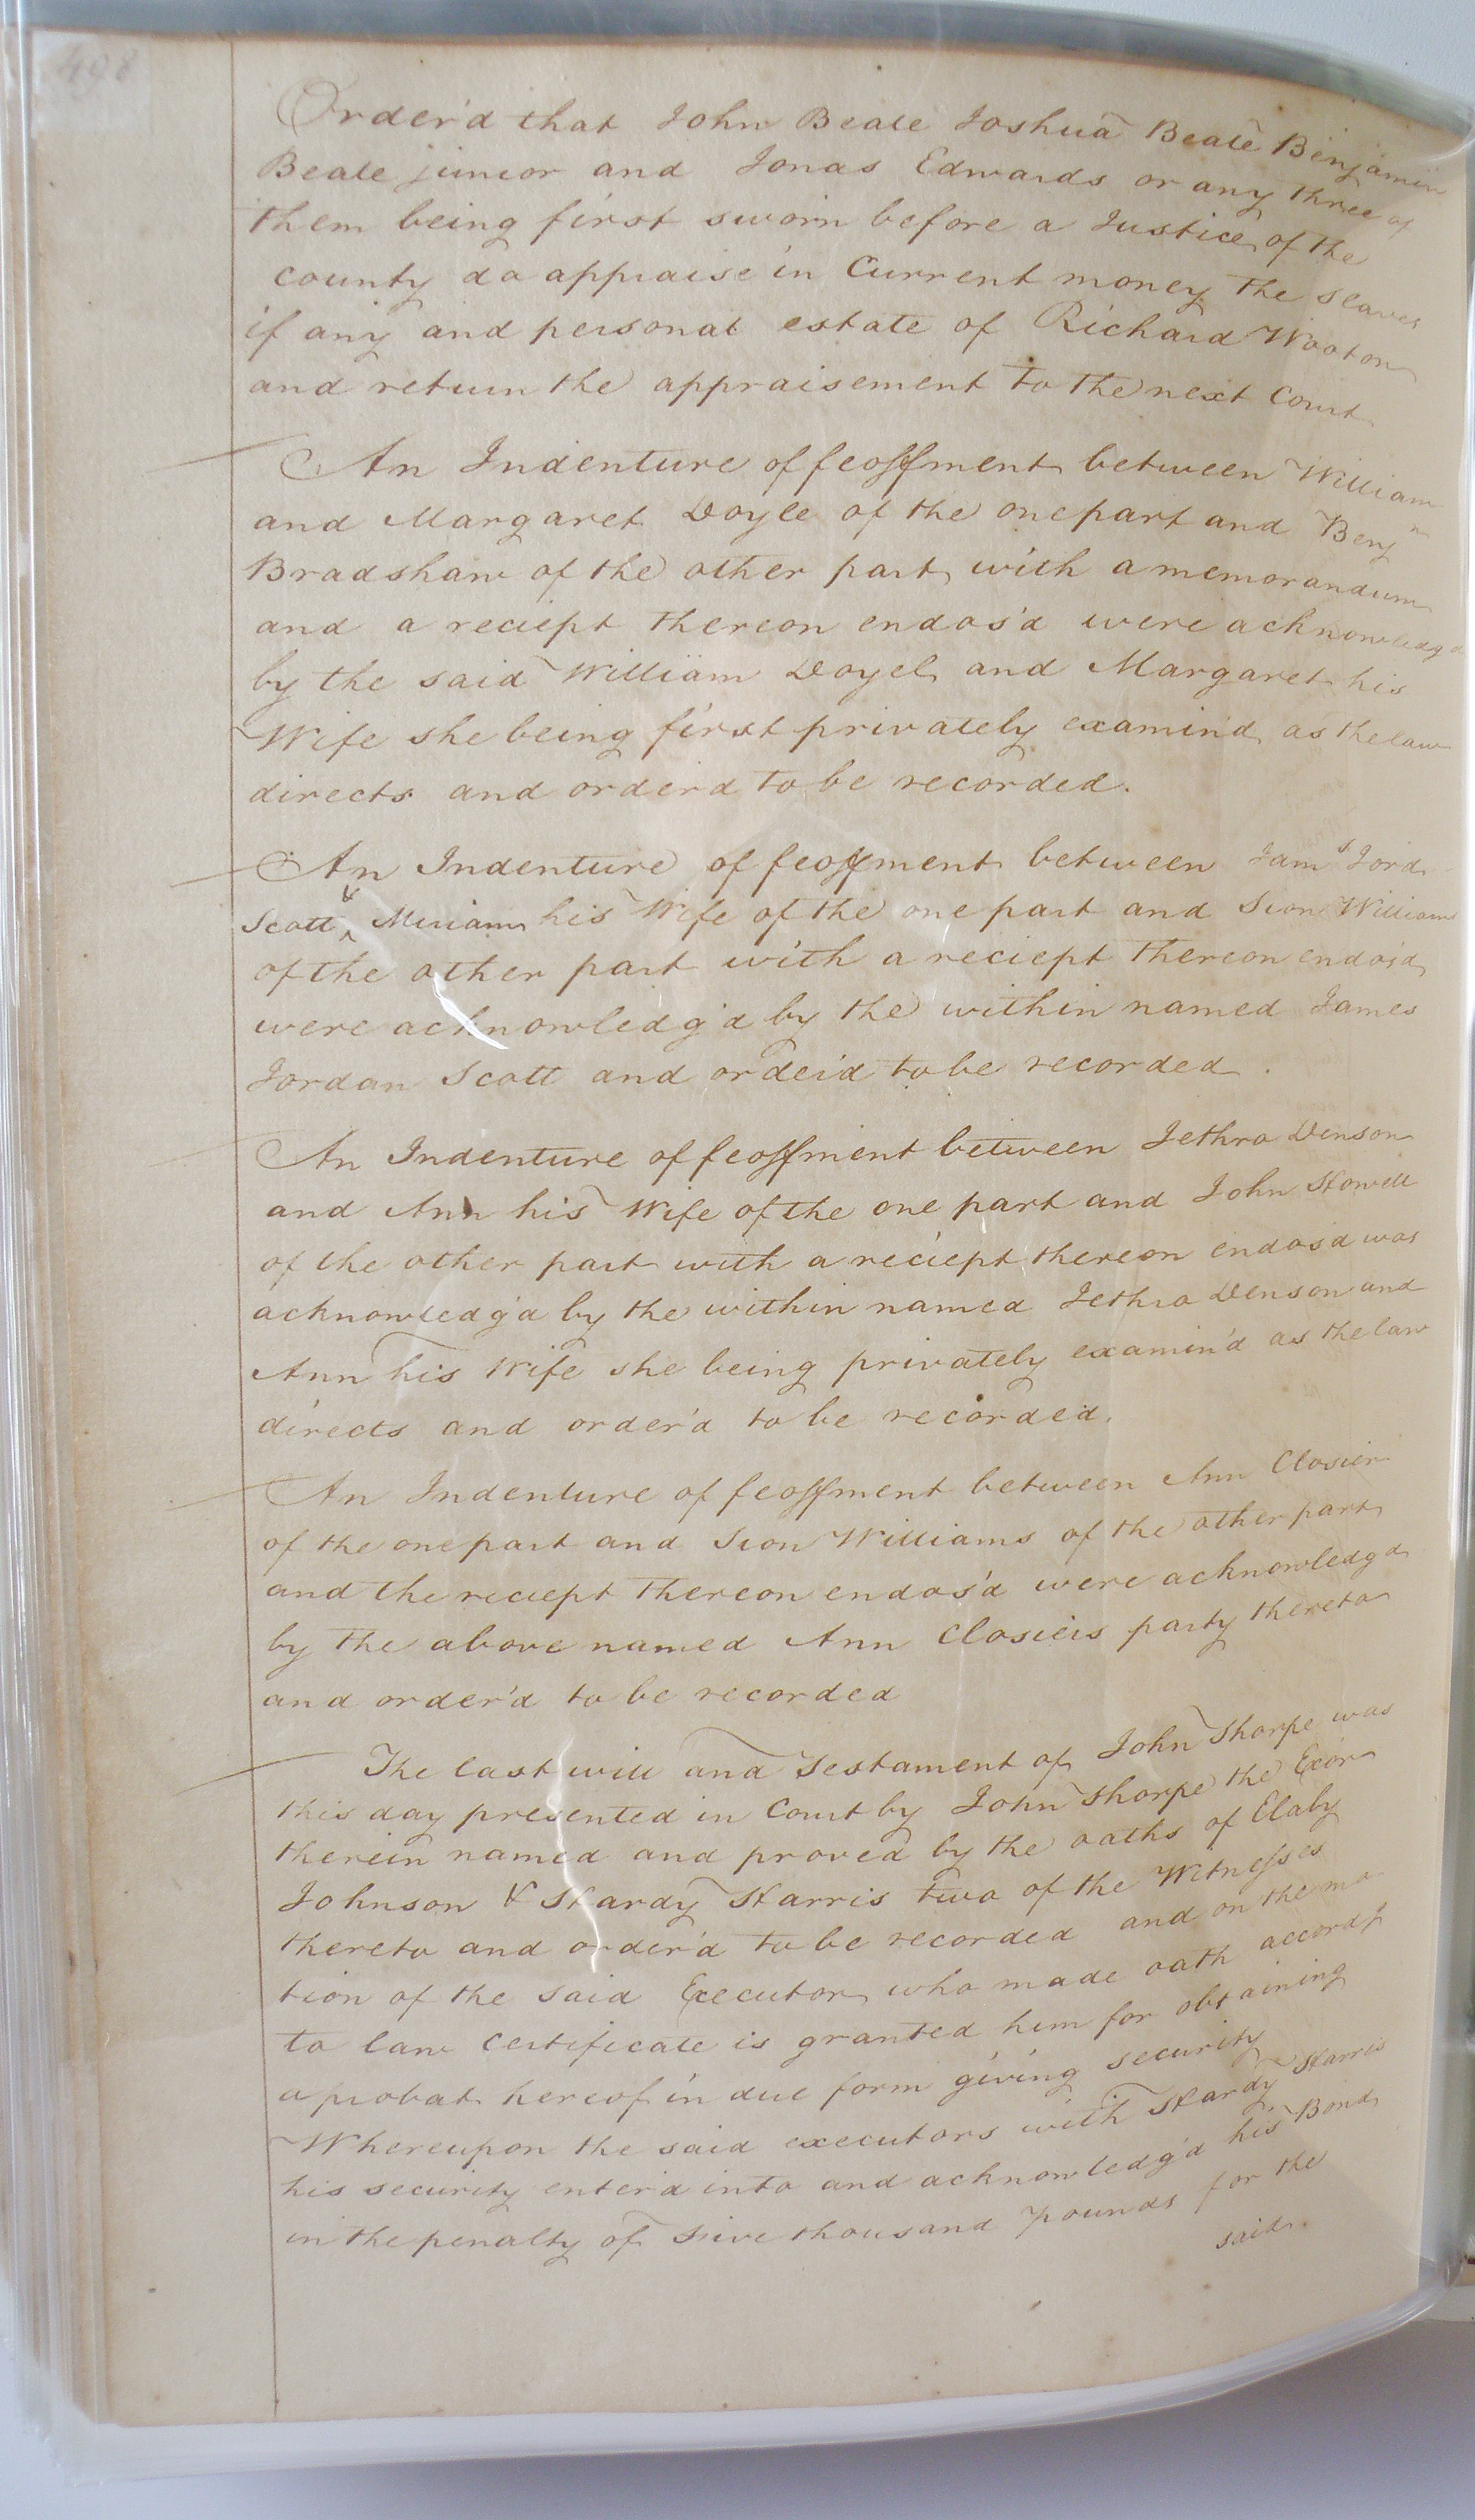 498
Order'd that John Beale Joshua Beale Benjamin
Beale junior and Jonas Edwards or any three of
them being first sworn before a Justice of the
county do appraise in Current money the slaves
if any and personal estate of Richard Wooton
and return the appraisement to the next Court
An Indenture of feoffment between William
and Margaret Doyle of the one part and Benjn
Bradshaw of the other part with a memorandum
and a reciept thereon endos'd were acknowledg'd
by the said William Doyel and Margaret his
Wife she being first privately examin'd as the law
directs and order'd to be recorded.
An Indenture of feoffment between Jams Jord
Scott & Miriam his Wife of the one part and Sion Williams
of the other part with a reciept thereon endos'd
were acknowledg'd by the within named James
Jordan Scott and order'd to be recorded.
An Indenture of feoffment between Jethro Denson
and Ann his Wife of the one part and John Howell
of the other part with a reciept thereon endos'd was
acknowledg'd by the within named Jethro Denson and
Ann his Wife she being privately examin'd as the law
directs and order'd to be recorded.
An Indenture of feoffment between Ann Closier
of the one part and Sion Williams of the other part
and the reciept thereon endos'd were acknowledg'd
by the above named Ann Closieis party thereto
and order'd to be recorded
The last will and Testament of John Tharpe was
this day presented in Court by John Tharpe the Exor
therein named and proved by the oaths of Elaby
Johnson & Hardy Harris two of the Witnesses
thereto and order'd to be recorded and on the mo
tion of the said Executor who made oath accordg
to law certificate is granted him for obtaining
a probat hereof in due form giving security
Whereupon the said executors with Hardy Harris
his security enter'd into and acknowledg'd his Bond
in the penalty of five thousand pounds for the
said